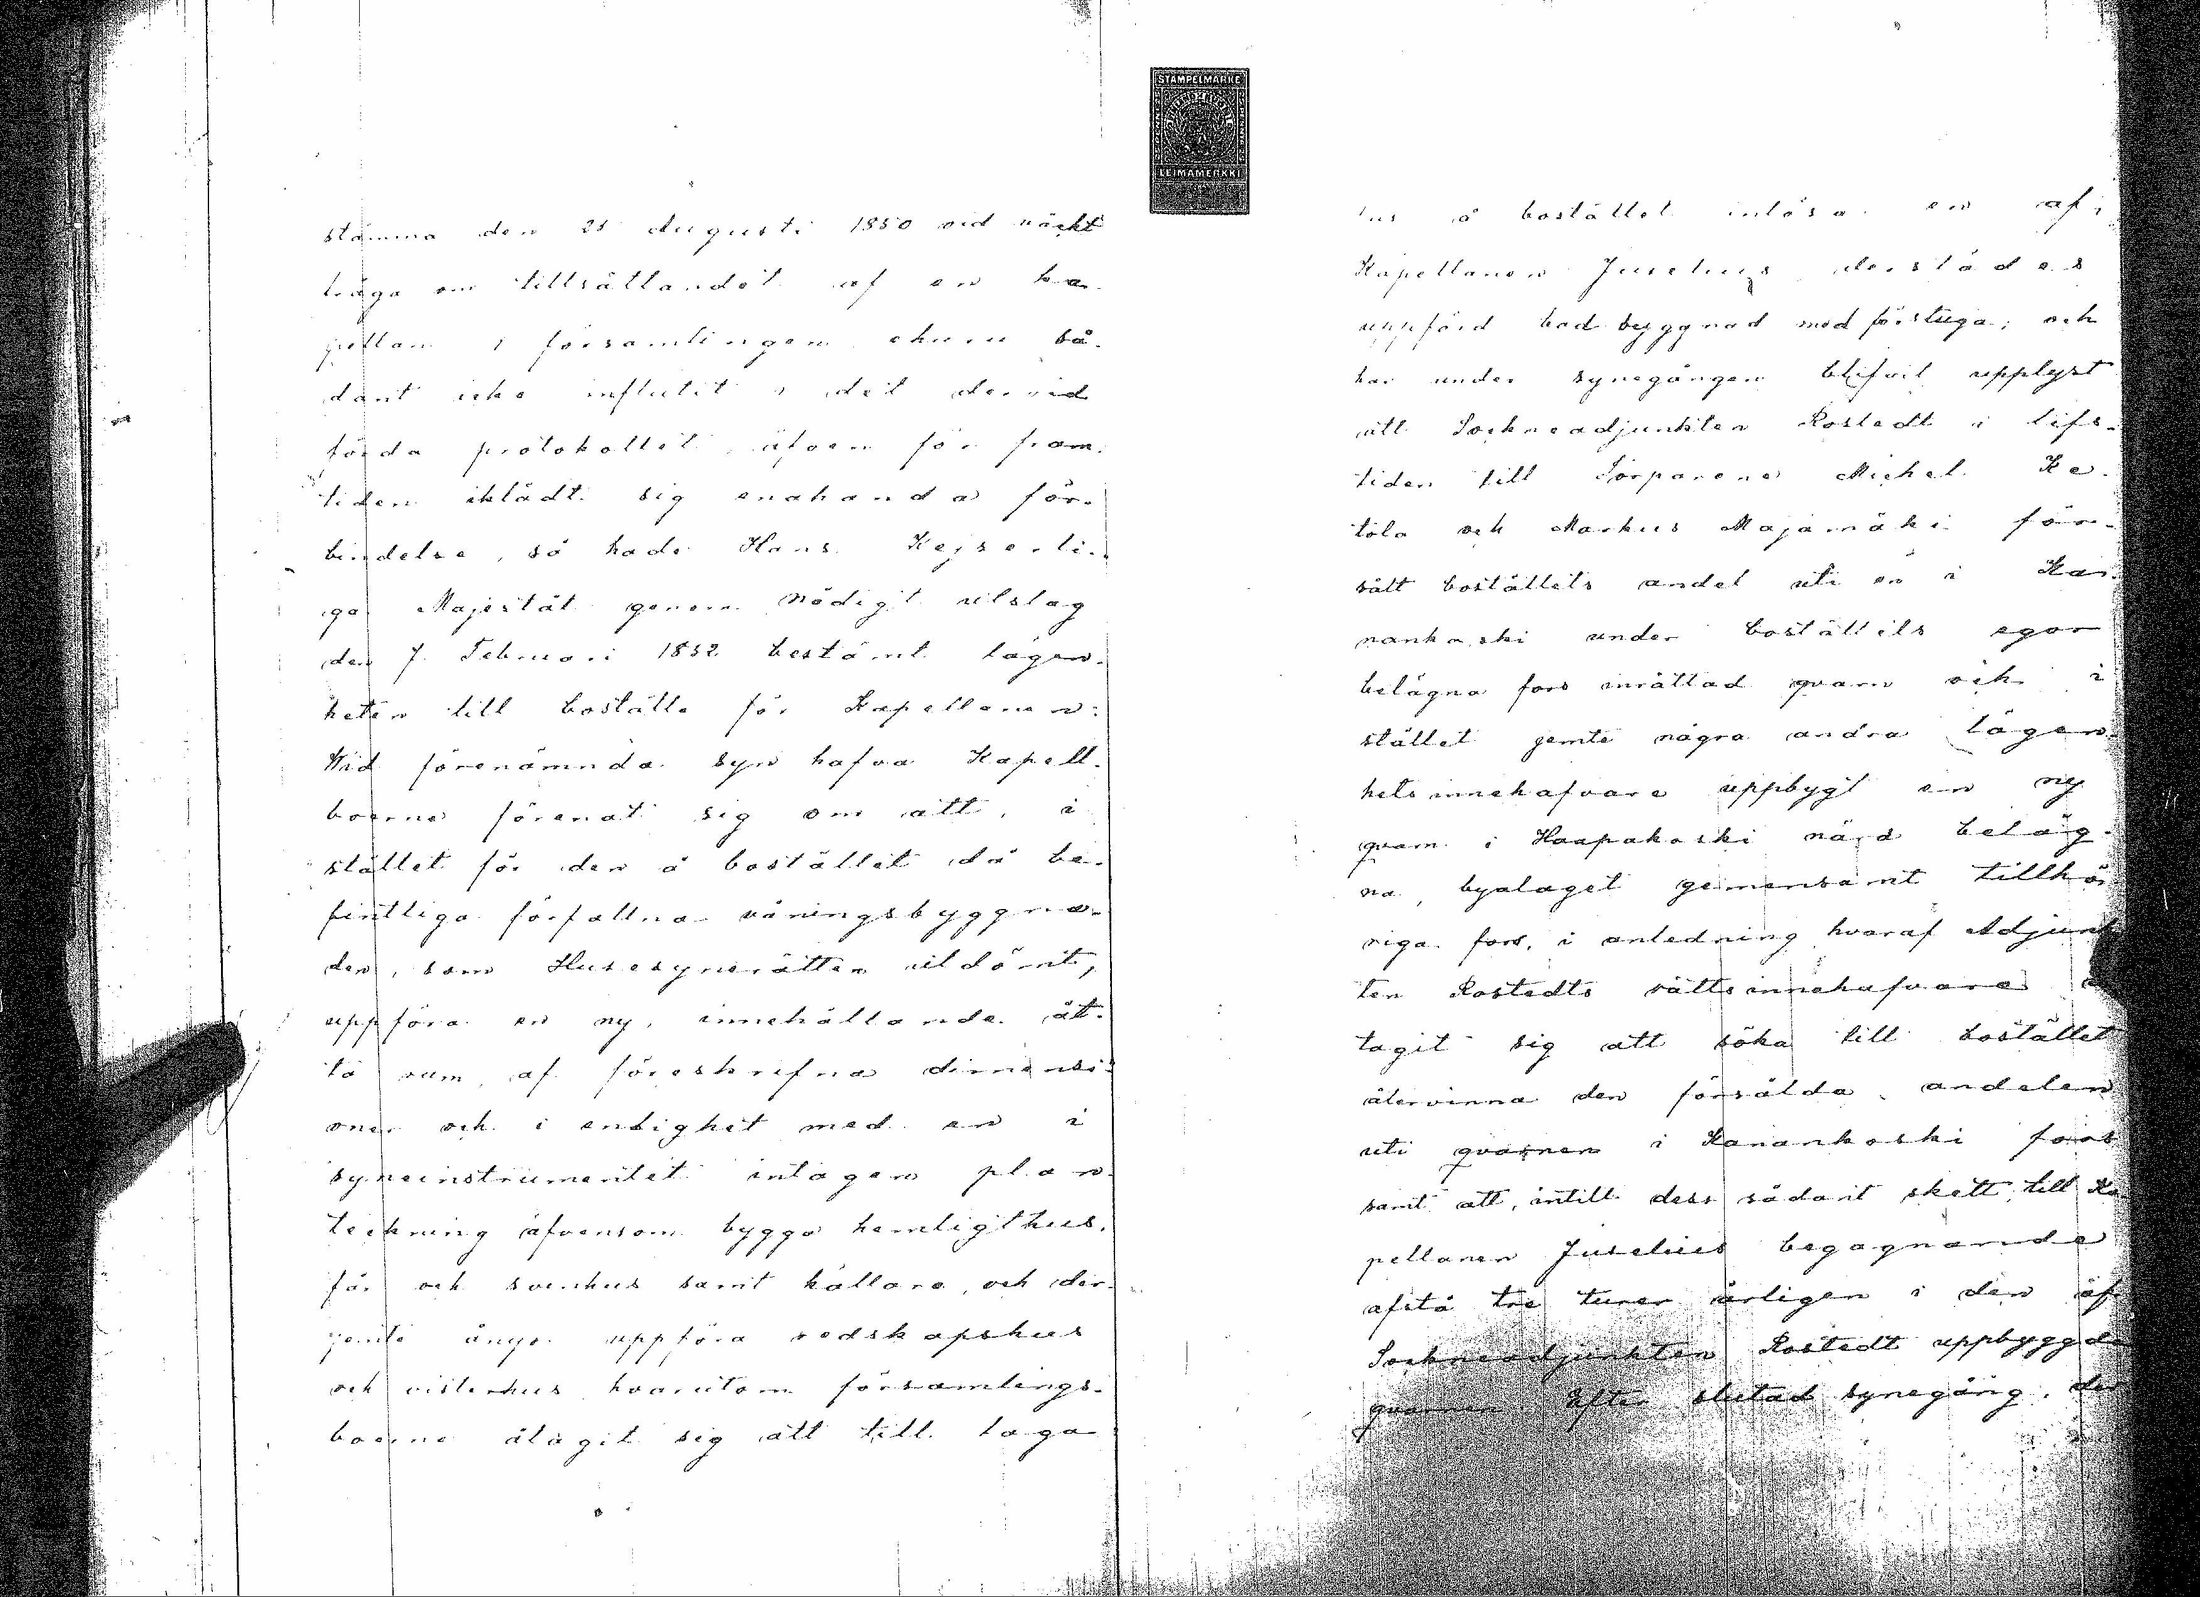 stämma den 25 Augusti 1850 vid väckt
fråga om tillsättandet af en ka-
pellan i församlingen ehuru så-
dant icke influtit i det dervid
förda protokollet, äfven för fram-
tiden iklädt sig enahanda för-
bindelse, så hade Hans Kejserli-
ga Majestät genom Nådigt utslag
den 7 Februari 1852 bestämt lägen-
heten till boställe för Kapellanen:
Wid förenämnda syn hafva Kapell-
boerne förenat sig om att, i
stället för den å bostället då be-
fintliga förfallna våningsbyggna-
den, som Husesynsrätten utdömt,
uppföra en ny, innehållande åt-
ta rum, af föreskrifna dimensi-
oner och i enlighet med en i
syneinstrumentet intagen plan-
teckning äfvensom bygga hemligthus,
får och svinhus samt källare, och der-
jemte ånyo uppföra redskapshus
och visterhus hvarutom församlings-
boerne åtagit sig att till laga
STAMPELMÄRKE
LEIMAMERKKI
hus å bostället inlösa en af
Kapellanen Juselius derstädes
uppförd badbyggnad med förstuga; och
har under synegången blifvit upplyst
att Sockneadjunkten Rostedt i lifs-
tiden till Torparene Michel Ke-
tola och Markus Majamäki för-
sålt boställets andel uti en i Ka-
nankoski under boställets egor
belägna fors inrättad qvarn och i
stället jemte några andra lägen-
hetsinnehafvare uppbygt en ny
qvarn i Haapakoski närd beläg-
na, byalaget gemensamt tillhö-
riga fors, i anledning hvaraf Adjunk
ten Rostedts rättsinnehafvare
tagit sig att söka till bostället
återvinna den försålda andelen
uti qvarnen i Kanankoski fors
samt att, intill dess sådant skett, till Ka
pellanen Juselius begagnande
afstå tre turer årligen i den af
Sockneadjunkten Rostedt uppbyggda
qvarnen Efter slutad synegång, der